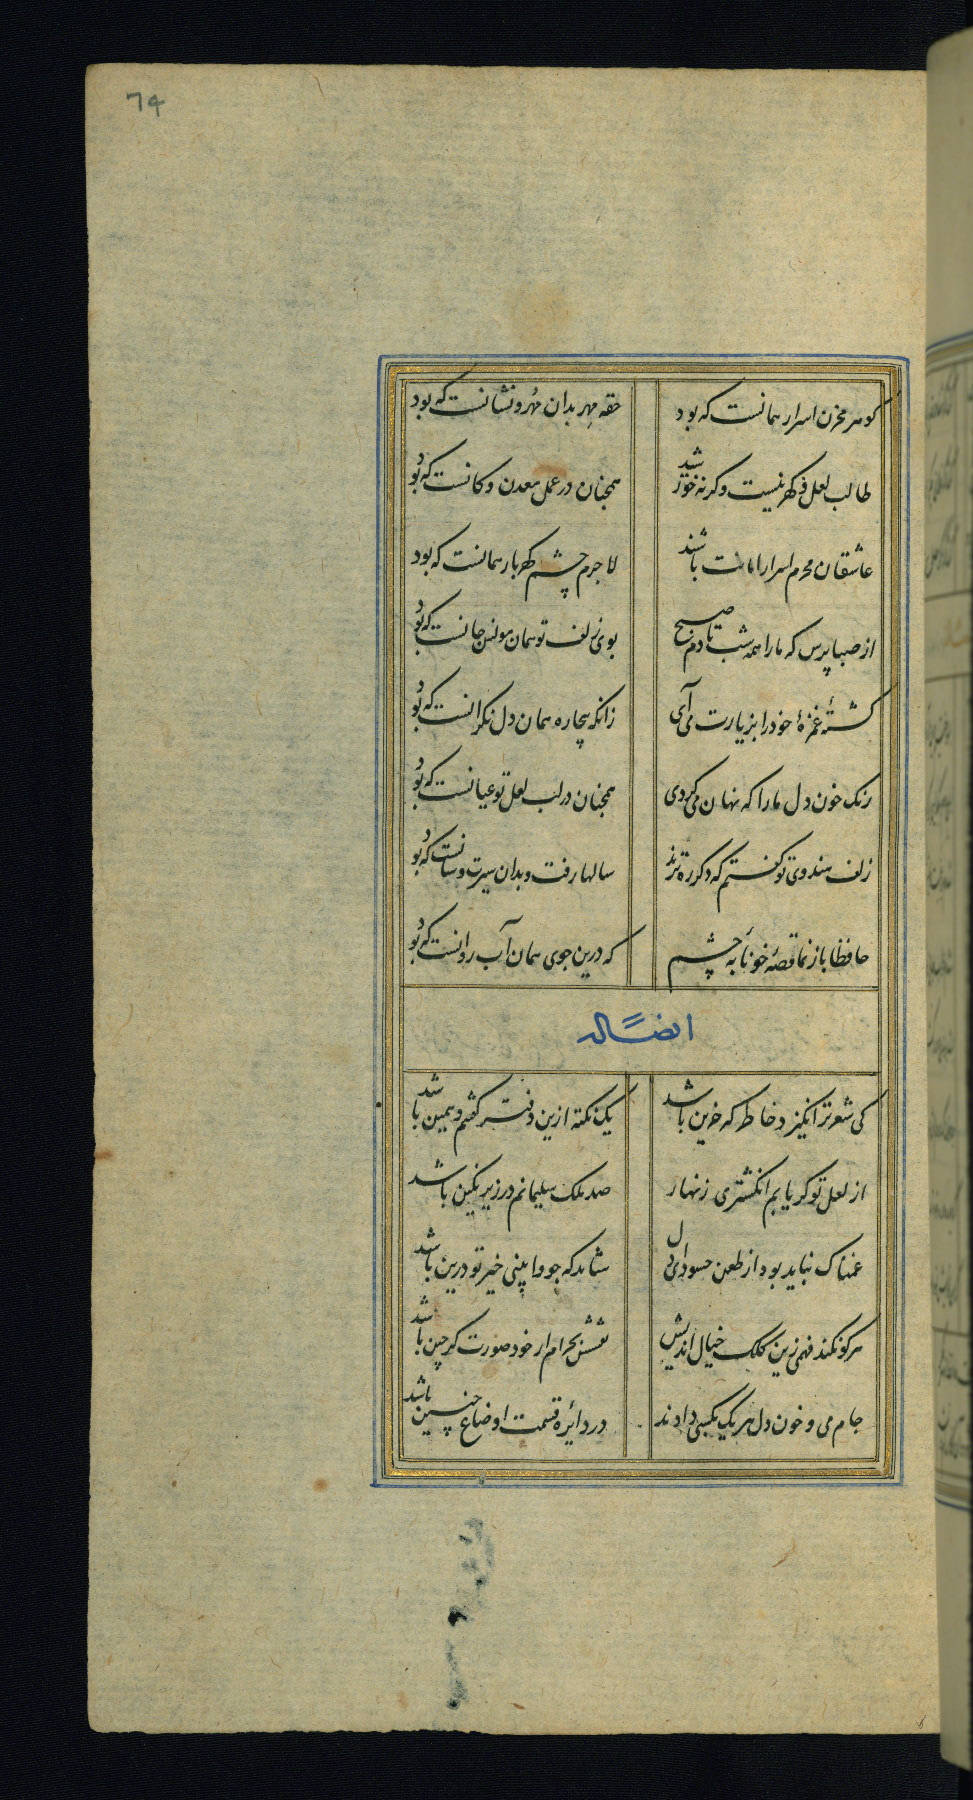 74
کوهر مخزن اسرار همانست که بود
حقه مهر بدان مُهر و نشانست که بود
طالب لعل و کهر نیست وکرنه خورشید
همچنان در عمل معدن و کانست که بود
عاشقان محرم اسرار امانت باشند
لاجرم چشم کهربار همانست که بود
از صبا پرس که ما را همه شب تا دم صبح
بوی زلف تو همان مونس جانست که بود
کشتهٔ غمزهٔ خود را بزیارت می آی
زانکه بیچاره همان دل نکرانست که بود
رنک خون دل ما را که نهان می کردی
همچنان در لب لعل تو عیانست که بود
زلف هندوی تو کفتم که دکر ره نزند
سالها رفت و بدان سیرت و سانست که بود
حافظا باز نما قصهٔ خونابهٔ چشم
که درین جوی همان آب روانست که بود
ایضاً له
کی شعر تر انکیزد خاطر که حزین باشد
یک نکته ازین دفتر کفتم و همین باشد
از لعل تو کر یابم انکشتری زنهار
صد ملک سلیمانم در زیر نکین باشد
غمناک نباید بود از طعن حسود ای دل
شاید که چو وا بینی خیر تو درین باشد
هر کو نکند فهمی زین کلک خیال اندیش
نقشش بحرام ار خود صورت کر چین باشد
جام می و خون دل هر یک بکسی دادند
در دائره قسمت اوضاع چنین باشد